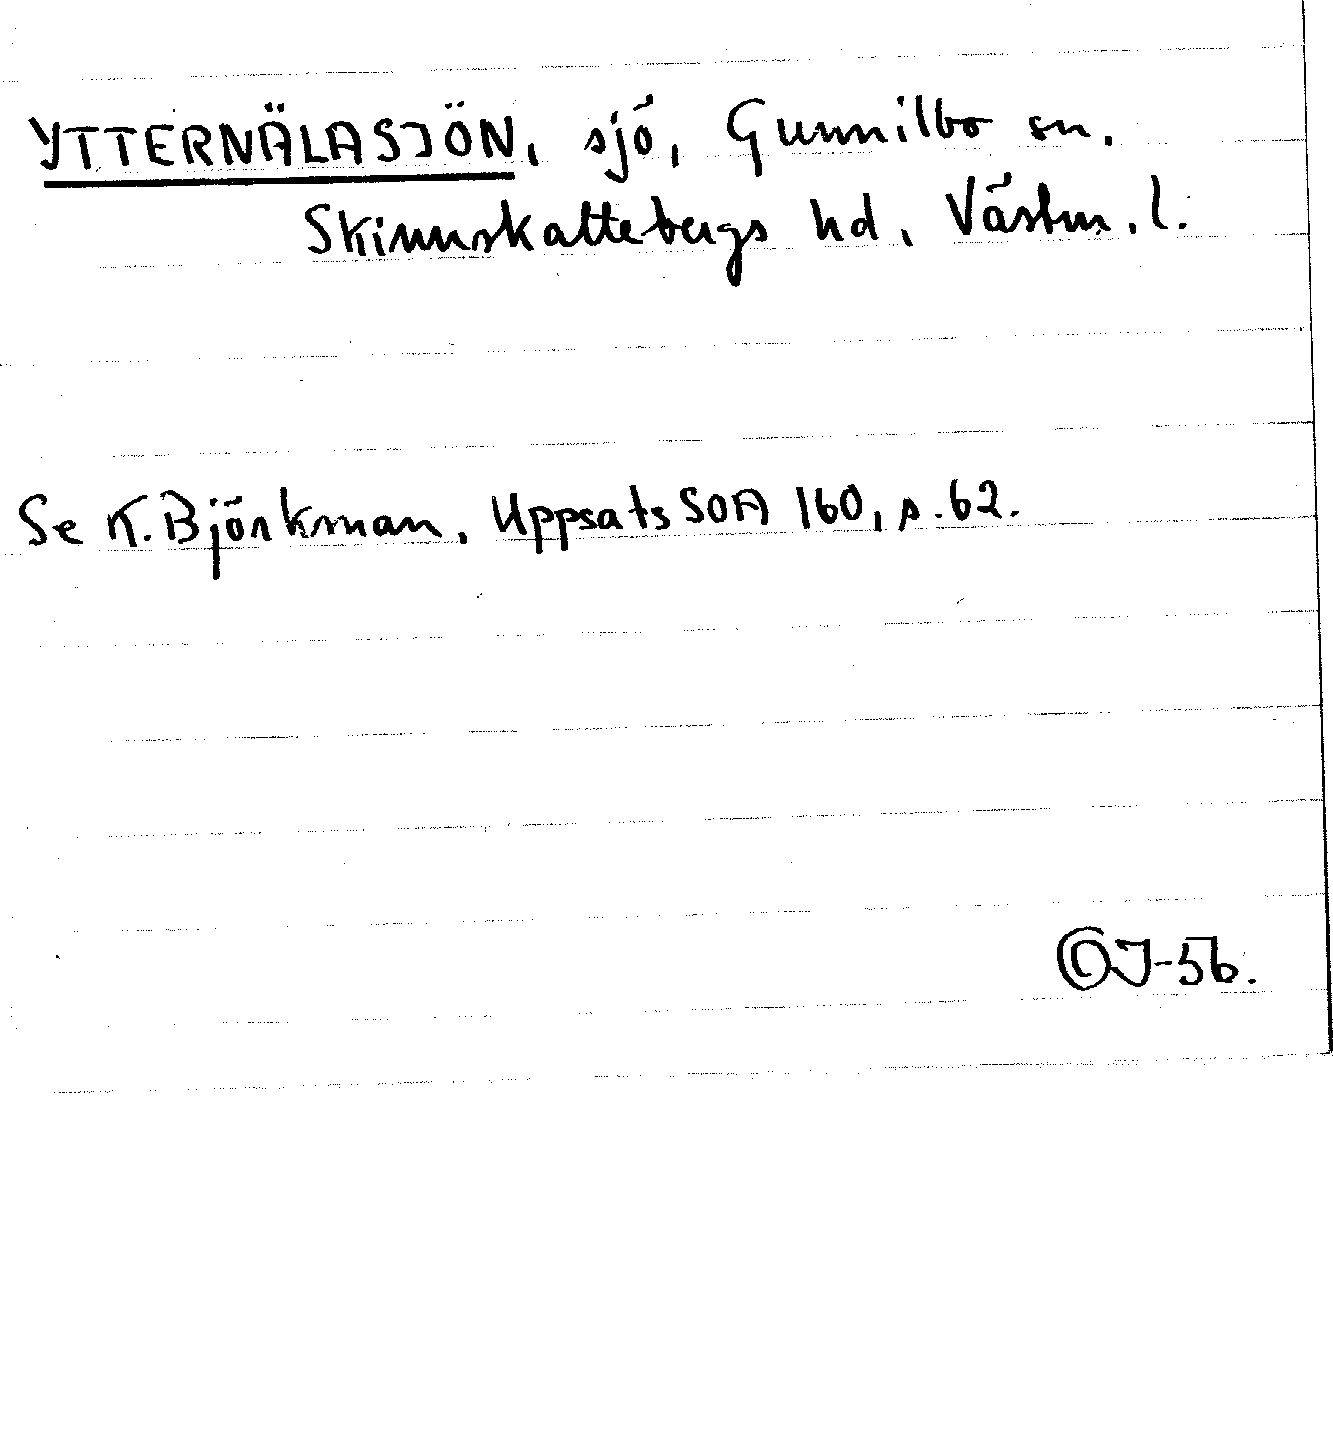 YTTERNÄLASJÖN, sjö, Gunnilbo sn.
Skinnskattebergs hd, Västm. l.
Se K. Björkman, Uppsats SOA 160, s. 62.
OJ-56.